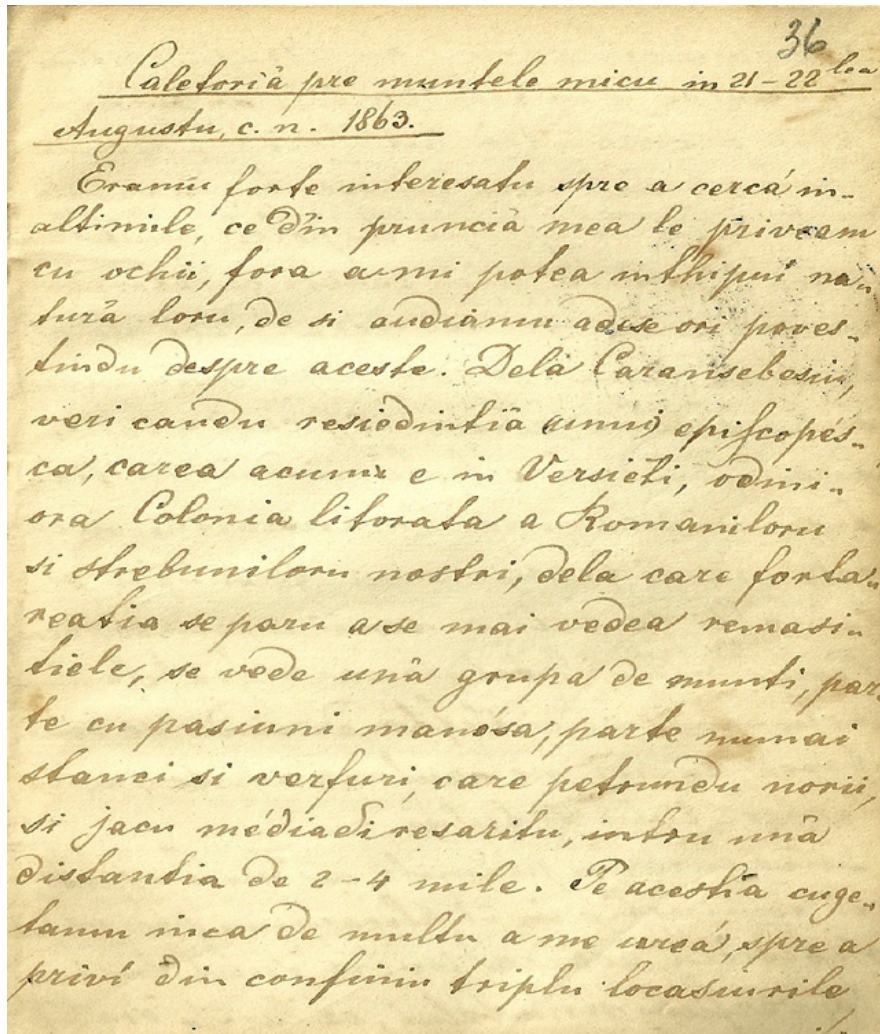 36
Caletoriă pre muntele micu in 21-22 lea
Augustu, c. n. 1863.
Eramu forte interesatu spre a cercá in-
altimile, ce din prunciă mea le priveam
cu ochii, fora a-mi potea inthipui na-
tură loru, de si audiamu adese ori poves-
tindu despre aceste. Dela Caransebesiu,
veri candu resiedintiă (unui) episcopés-
ca, carea acumu e in Versieti, odini-
ora Colonia litorata a Romaniloru
si strebuniloru nostri, dela care forta-
reatia se paru a se mai vedea remasi-
tiele, se vede ună grupa de munti, par-
te cu pasiuni manósa, parte numai
stanci si verfuri, care petrundu norii,
si jacu médiadi resaritu, intru ună
distantia de 2-4 mile. Pe acestia cuge-
tamu inca de multu a me urcá, spre a
privi din confiniu triplu locasiurile